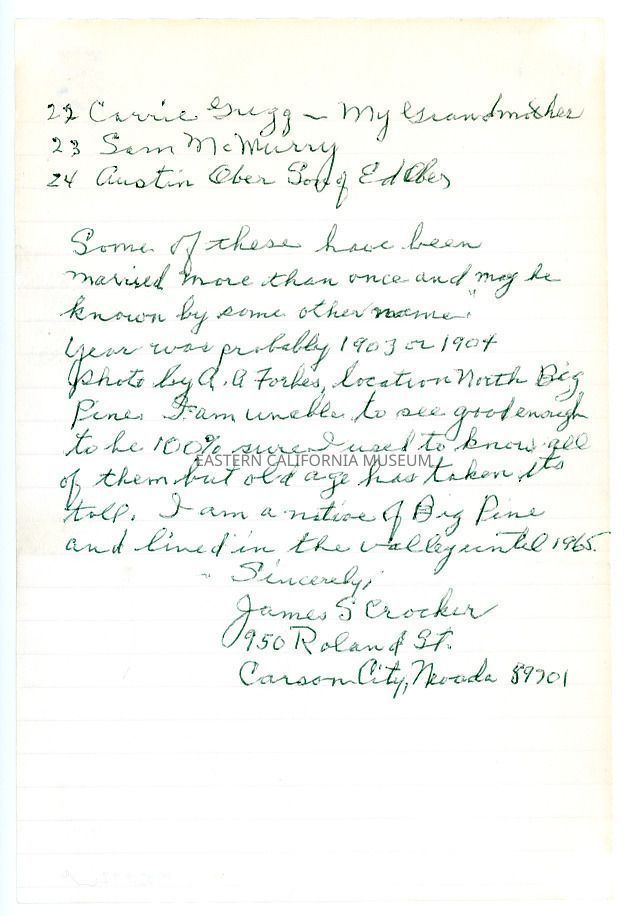 22 Carrie Gregg - My Grandmother
23 Sam McMurry
24 Austin Ober Son of Ed Ober
Some of these have been
married more than once and may be
known by some other name.
Year was probably 1903 or 1904
Photo by A. A Forbes, location North Big
Pine. I am unable to see good enough
to be 100% sure I used to know all
EASTERN CALIFORNIA MUSEUM
of them but old age has taken its
toll. I am a native of Big Pine
and lived in the valley until 1965.
Sincerely,
James S Crocker
950 Roland St.
Carson City, Nevada 89701